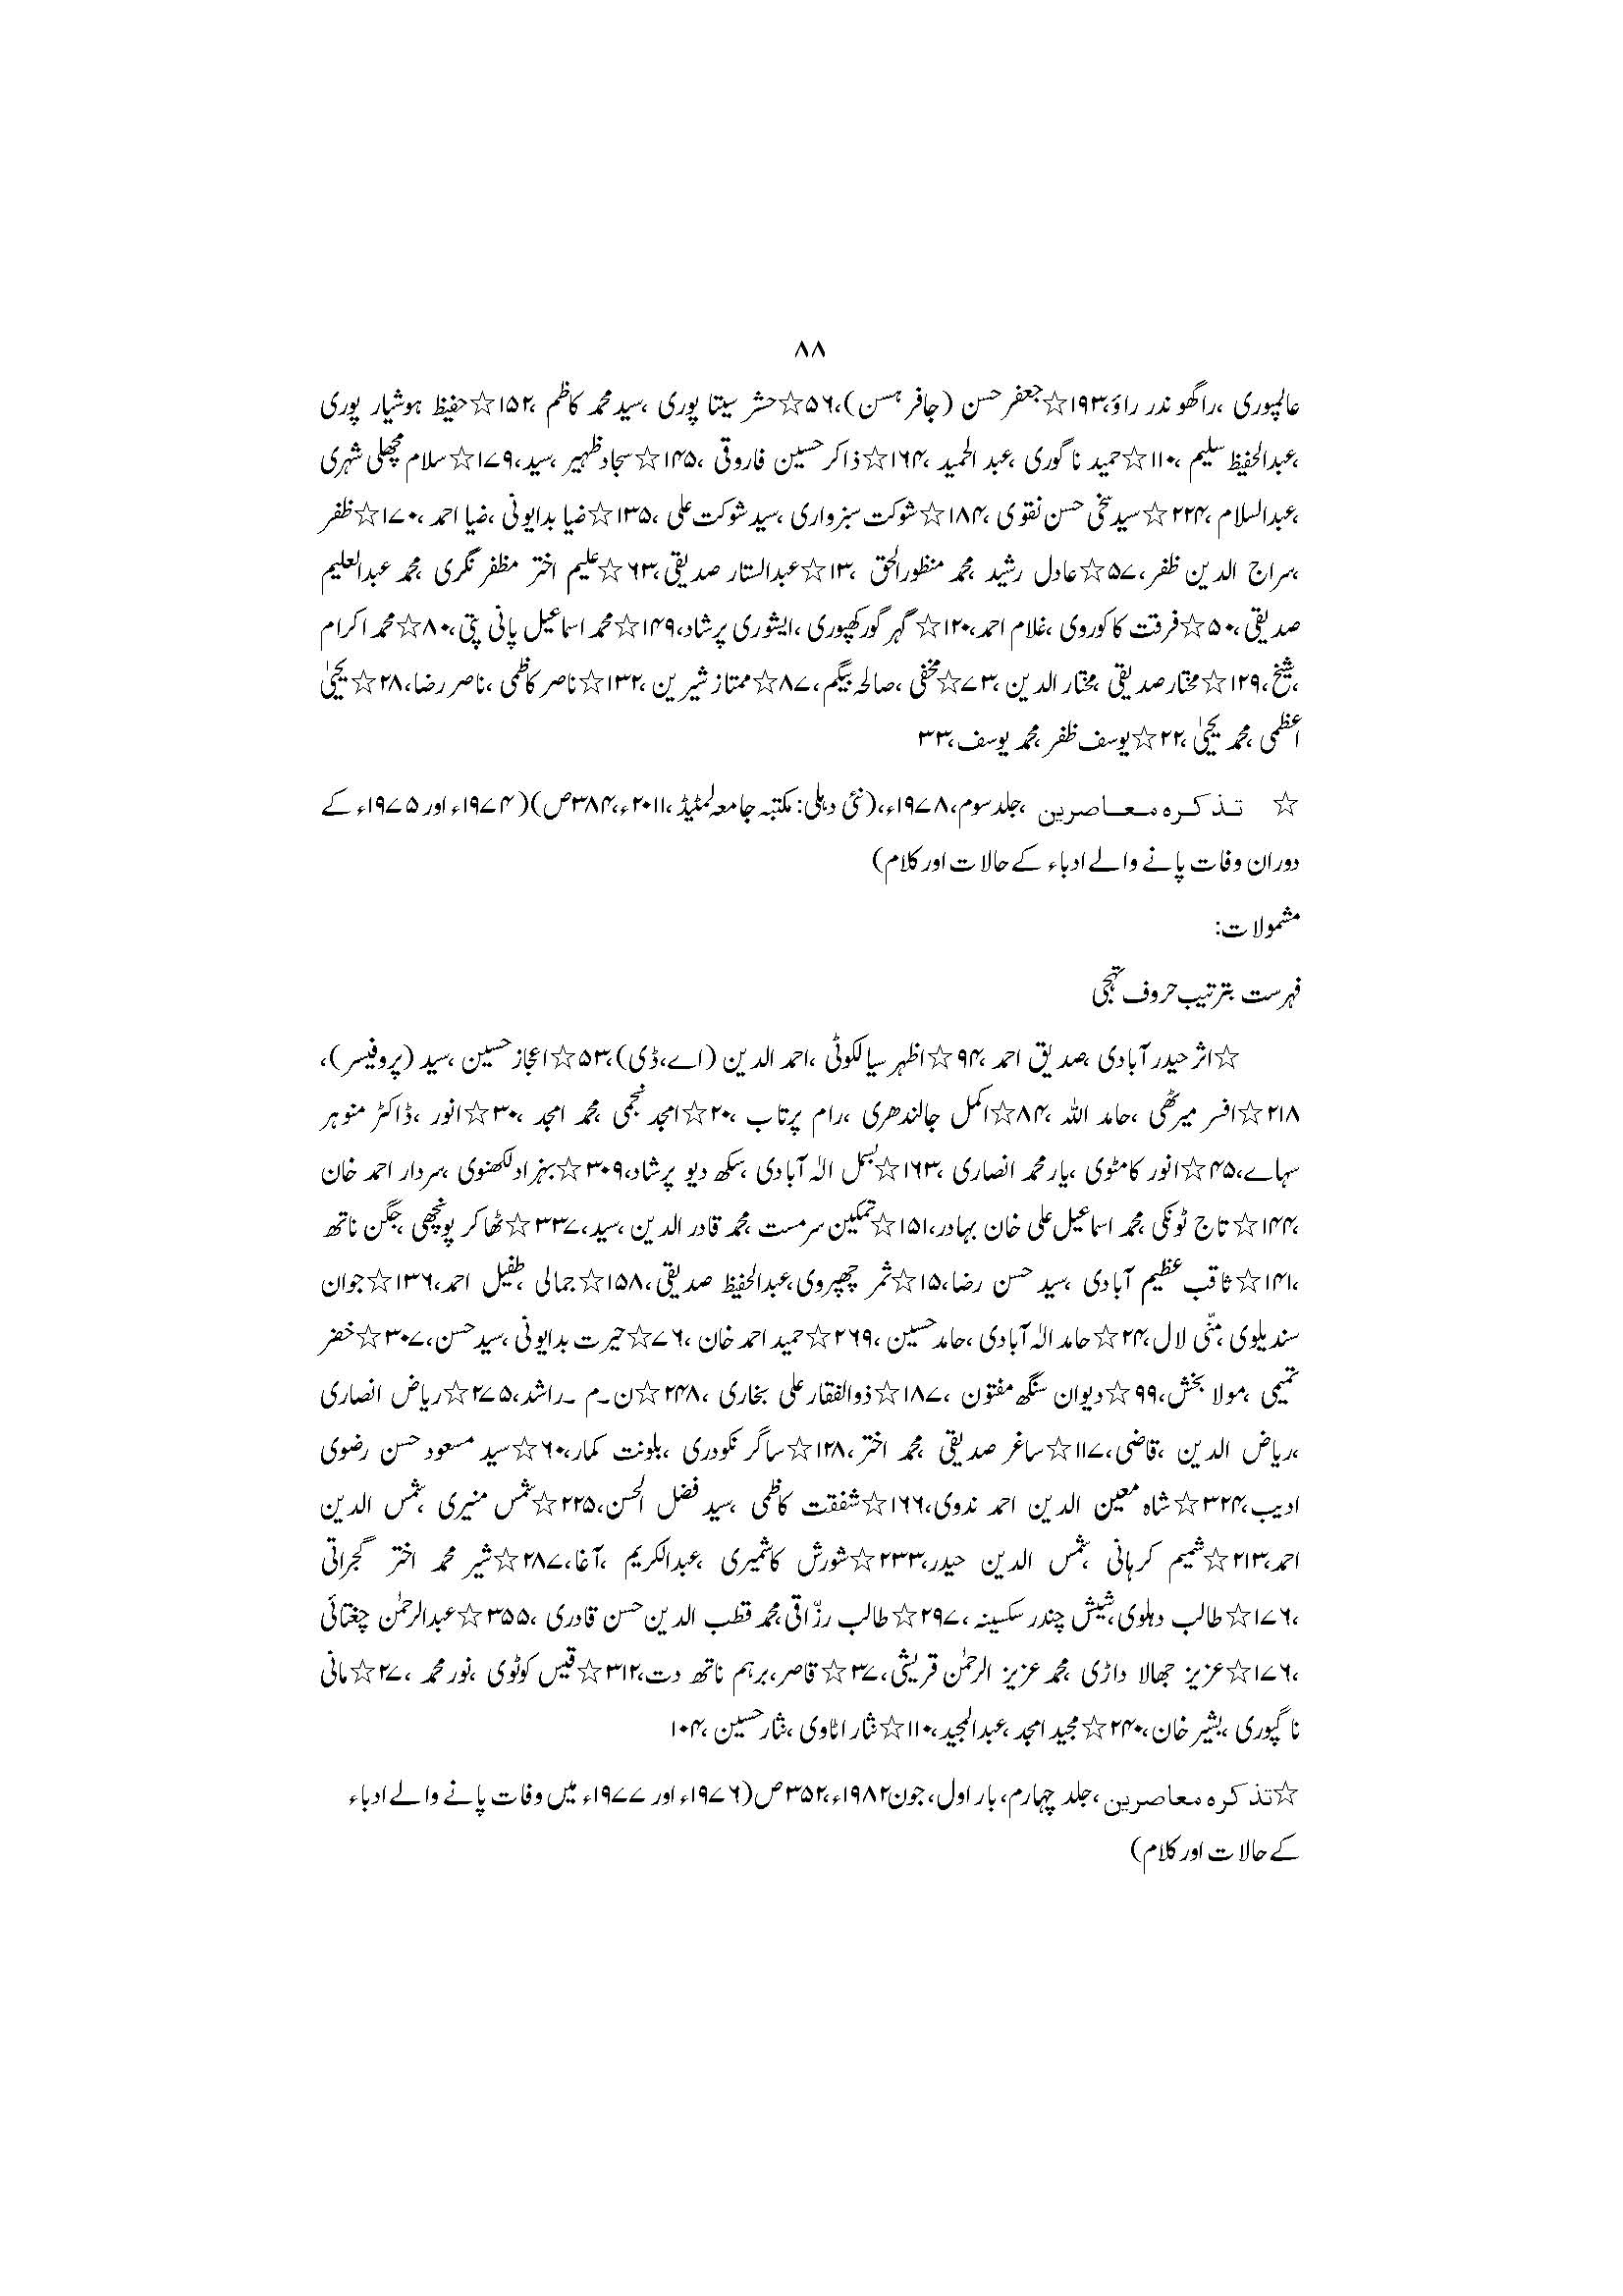 ۸۸
عالمپوری ،راگھوندر راؤ،۱۹۳☆جعفر حسن (جافر ہسن)،۵۶☆حشر سیتا پوری ،سید محمد کاظم ،۱۵۲☆حفیظ ہوشیار پوری
،عبدالحفیظ سلیم ،۱۱۰☆حمید ناگوری ،عبد الحمید ،۱۶۴☆ذاکر حسین فاروقی ،۱۴۵☆سجاد ظہیر ،سید،۱۷۹☆سلام مچھلی شہری
،عبدالسلام ،۲۲۴☆سید سخی حسن نقوی ،۱۸۴☆شوکت سبزواری ،سید شوکت علی ،۱۳۵☆ضیا بدایونی ،ضیا احمد ،۱۷۰☆ظفر
،سراج الدین ظفر،۵۷☆عادل رشید ،محمد منظورالحق ،۱۳☆عبدالستار صدیقی،۶۳☆علیم اختر مظفر نگری ،محمد عبدالعلیم
صدیقی،۵۰☆فرقت کاکوروی ،غلام احمد،۱۲۰☆گہر گورکھپوری ،ایشوری پرشاد،۱۴۹☆محمد اسماعیل پانی پتی،۸۰☆محمد اکرام
،شیخ،۱۲۹☆مختار صدیقی ،مختار الدین ،۷۳☆مخفی ،صالحہ بیگم،۸۷☆ممتاز شیریں ،۱۳۲☆ناصر کاظمی ،ناصر رضا،۲۸☆یحییٰ
اعظمی ،محمد یحییٰ ،۲۲☆یوسف ظفر ،محمد یوسف،۳۳
☆ تذکرہ معاصرین ،جلد سوم،۱۹۷۸ء،(نئی دہلی: مکتبہ جامعہ لمٹیڈ ،۲۰۱۱ء،۳۸۴ص)(۱۹۷۴ء اور ۱۹۷۵ء کے
دوران وفات پانے والے ادباء کے حالات اور کلام)
مشمولات:
فہرست بترتیب حروف تہجی
☆اثر حیدر آبادی ،صدیق احمد ،۹۴☆اظہر سیالکوٹی ،احمد الدین (اے،ڈی)،۵۳☆اعجاز حسین ،سید (پروفیسر)،
۲۱۸☆افسر میرٹھی ،حامد اللہ ،۸۴☆اکمل جالندھری ،رام پرتاب ،۲۰☆امجد نجمی ،محمد امجد ،۳۰☆انور ،ڈاکٹر منوہر
سہاے،۴۵☆انور کامٹوی ،یار محمد انصاری ،۱۶۳☆بسمل الٰہ آبادی ،سکھ دیو پرشاد،۳۰۹☆بہزاد لکھنوی ،سردار احمد خان
،۱۴۴☆تاج ٹونکی ،محمد اسماعیل علی خان بہادر،۱۵۱☆تمکین سرمست ،محمد قادر الدین ،سید،۳۳۷☆ٹھاکر پونچھی ،جگن ناتھ
،۱۴۱☆ثاقب عظیم آبادی ،سید حسن رضا،۱۵☆ثمر چھپروی،عبدالحفیظ صدیقی،۱۵۸☆جمالی ،طفیل احمد،۱۳۶☆جوان
سندیلوی ،منّی لال،۲۴☆حامد الٰہ آبادی ،حامد حسین ،۲۶۹☆حمید احمد خان ،۷۶☆حیرت بدایونی ،سید حسن،۳۰۷☆خضر
تمیمی ،مولا بخش،۹۹☆دیوان سنگھ مفتون ،۱۸۷☆ذوالفقار علی بخاری ،۲۴۸☆ن۔م۔راشد،۲۷۵☆ریاض انصاری
،ریاض الدین ،قاضی،۱۱۷☆ساغر صدیقی ،محمد اختر،۱۲۸☆ساگر نکودری ،بلونت کمار،۶۰☆سید مسعود حسن رضوی
ادیب،۳۲۴☆شاہ معین الدین احمد ندوی،۱۶۶☆شفقت کاظمی ،سید فضل الحسن،۲۲۵☆شمس منیری ،شمس الدین
احمد،۲۱۳☆شمیم کرہانی ،شمس الدین حیدر،۲۳۳☆شورش کاشمیری ،عبدالکریم ،آغا،۲۸۷☆شیر محمد اختر گجراتی
،۱۷۶☆طالب دہلوی،شیش چندر سکسینہ ،۲۹۷☆طالب رزّاقی،محمد قطب الدین حسن قادری ،۳۵۵☆عبدالرحمٰن چغتائی
،۱۷۶☆عزیز جھالا داڑی ،محمد عزیز الرحمٰن قریشی،۳۷☆قاصر،برہم ناتھ دت،۳۱۲☆قیس کوٹوی ،نور محمد ،۲۷☆مانی
ناگپوری ،بشیر خان،۲۴۰☆مجید امجد ،عبدالمجید،۱۱۰☆نثار اٹاوی ،نثار حسین ،۱۰۴
☆تذکرہ معاصرین ،جلد چہارم، بار اول، جون۱۹۸۲ء،۳۵۲ص (۱۹۷۶ء اور ۱۹۷۷ء میں وفات پانے والے ادباء
کے حالات اور کلام)